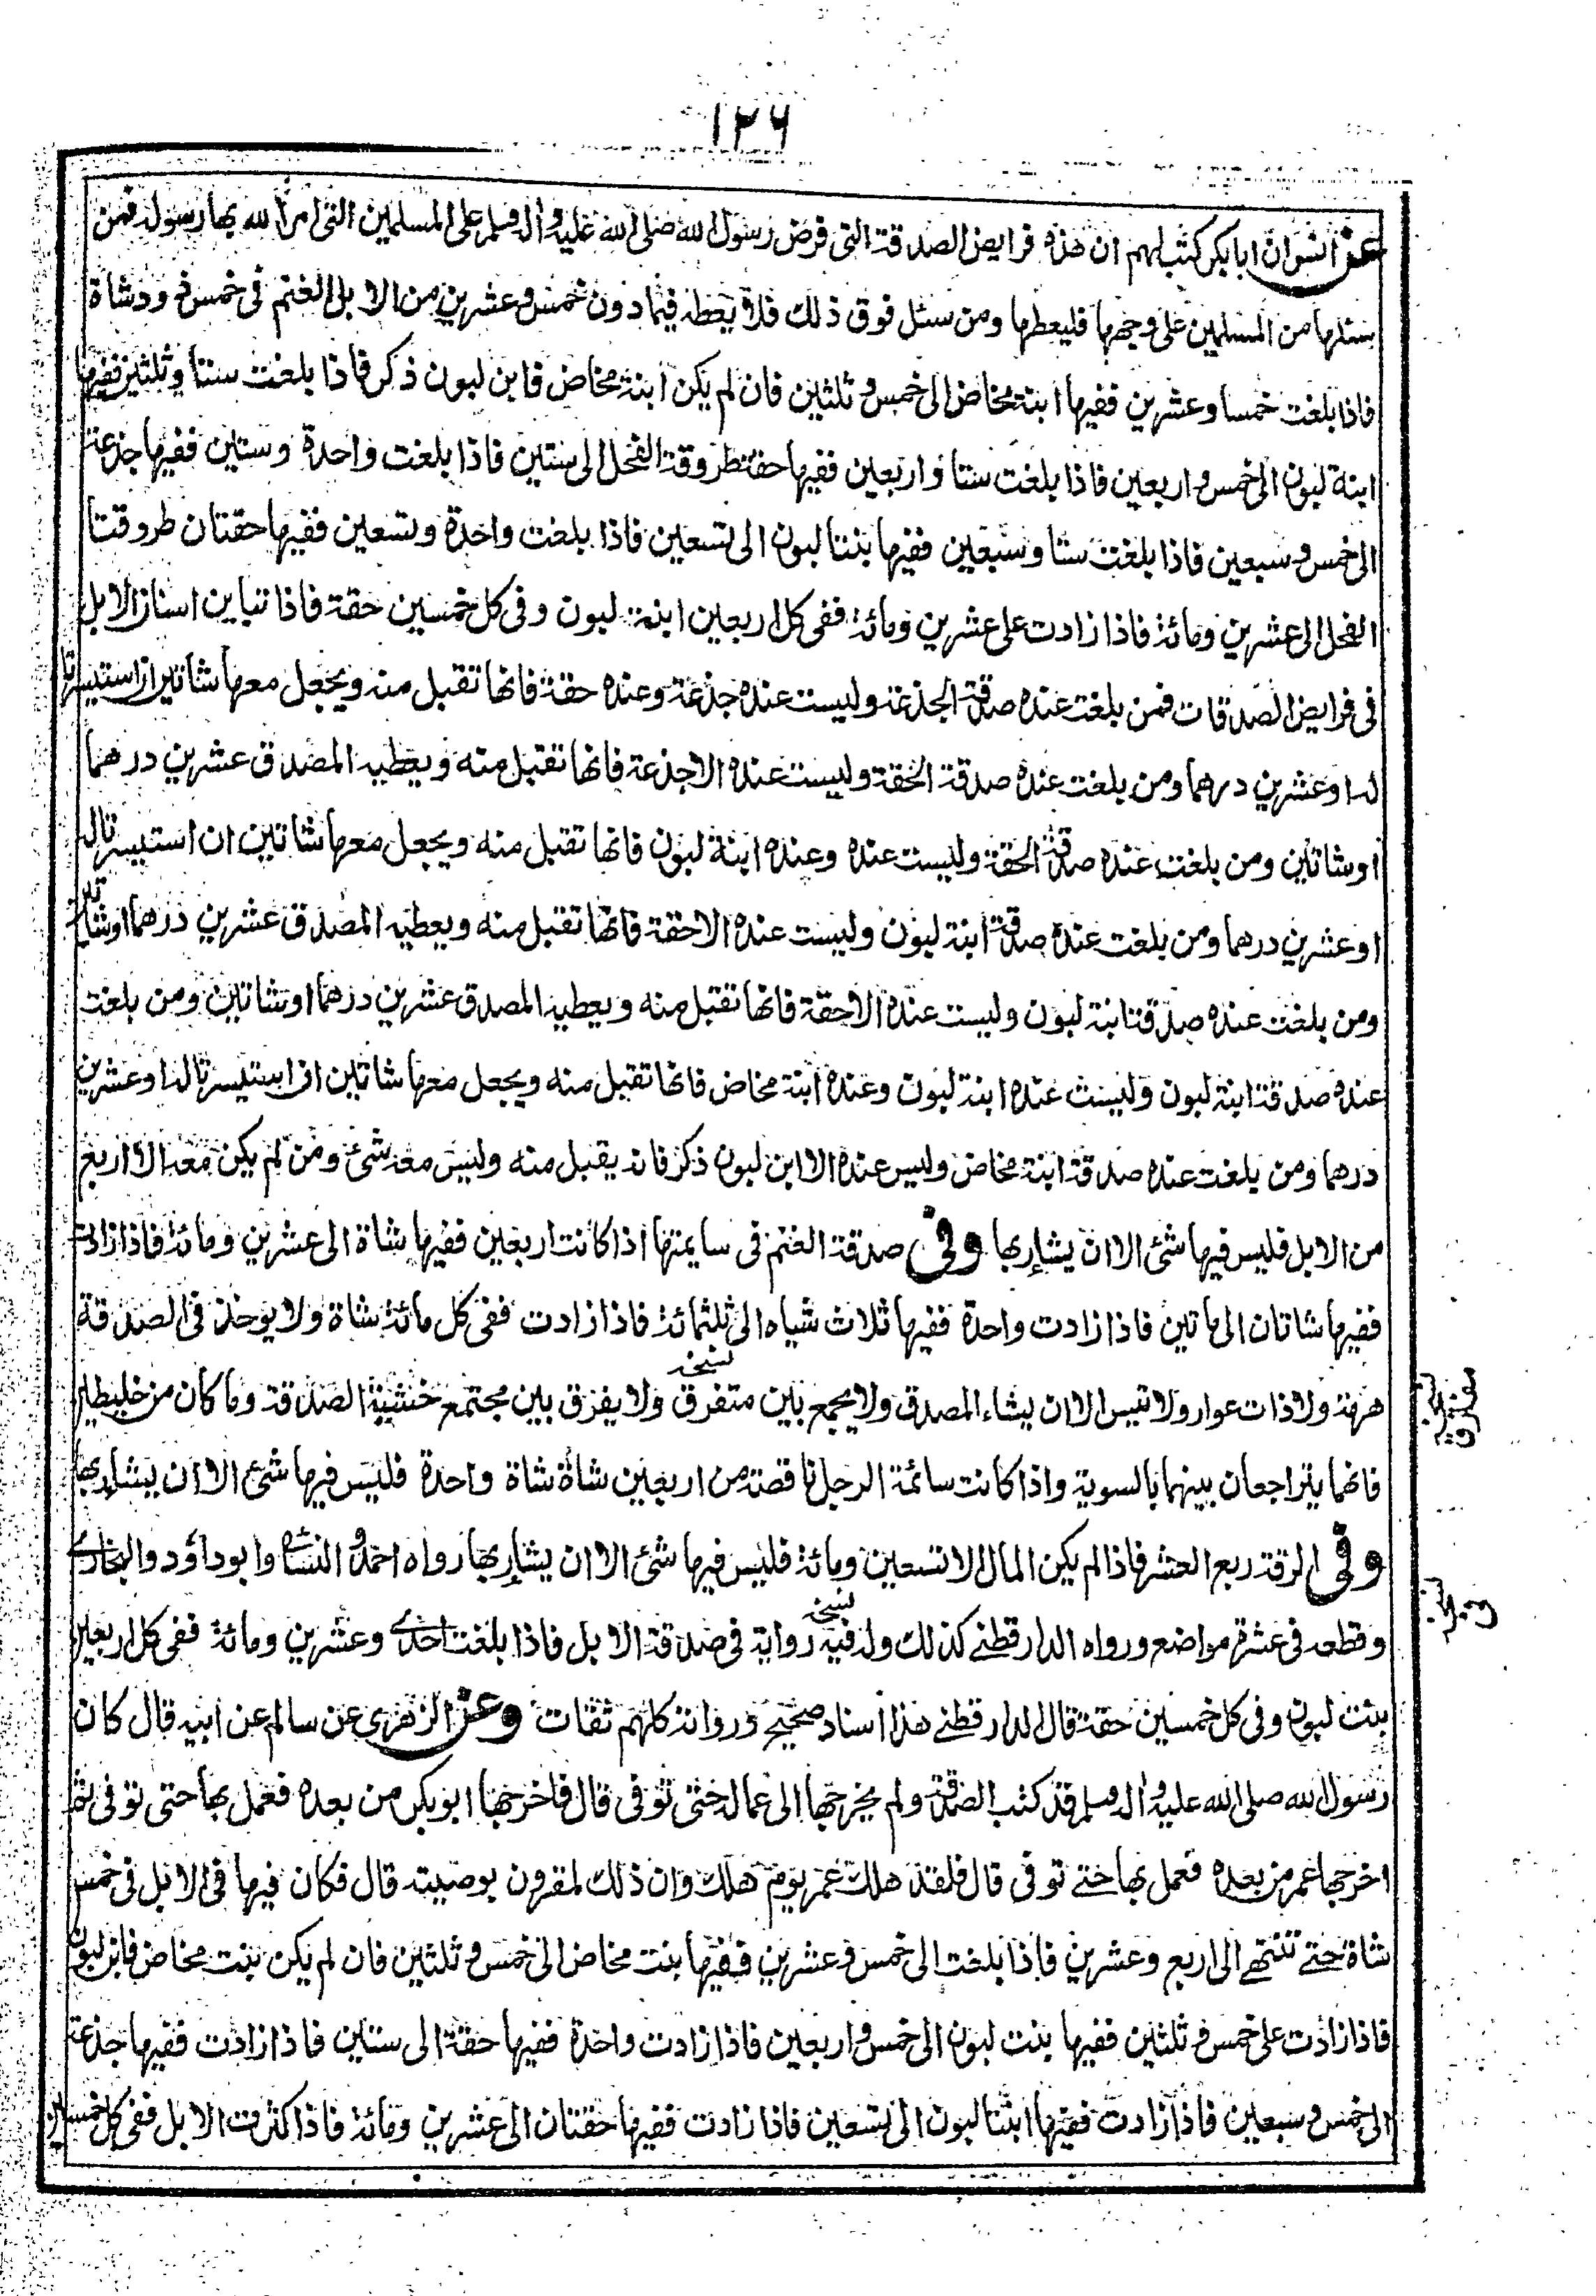 ١٢٦
عن انس ان ابا بكر كتب لهم ان هذه فرايض الصدقة التى فرض رسول الله صلى الله عليه وآله وسلم على المسلمين التى امر الله بها رسوله فمن
سئلها من المسلمين على وجهها فليعطها ومن سئل فوق ذلك فلا يعطه فيما دون خمس وعشرين من الابل الغنم فى خمس ذود شاة
فاذا بلغت خمسا وعشرين ففيها ابنة مخاض الى خمس و ثلثين فان لم يكن ابنة مخاض فابن لبون ذكر فاذا بلغت ستا وثلثين ففيها
ابنة لبون الى خمس و اربعين فاذا بلغت ستا و اربعين ففيها حقة طروقة الفحل الى ستين فاذا بلغت واحدة وستين ففيها جذعة
الى خمس و سبعين فاذا بلغت ستا وسبعين ففيها بنتا لبون الى تسعين فاذا بلغت واحدة وتسعين ففيها حقتان طروقتا
الفحل الى عشرين ومائة فاذا زادت على عشرين ومائة ففى كل اربعين ابنة لبون وفى كل خمسين حقة فاذا تباين اسنان الابل
فى فرايض الصدقات فمن بلغت عنده صدقة الجذعة وليست عنده جذعة وعنده حقة فانها تقبل منه ويجعل معها شاتين ان استيسرتا
له او عشرين درهما ومن بلغت عنده صدقة الحقة وليست عنده الا جذعة فانها تقبل منه ويعطيه المصدق عشرين درهما
او شاتين ومن بلغت عنده صدقة الحقة وليست عنده وعنده ابنة لبون فانها تقبل منه ويجعل معها شاتين ان استيسرتا له
او عشرين درهما ومن بلغت عنده صدقة ابنة لبون وليست عنده الا حقة فانها تقبل منه ويعطيه المصدق عشرين درهما او شاتين
ومن بلغت عنده صدقة ابنة لبون وليست عنده الا حقة فانها تقبل منه ويعطيه المصدق عشرين درهما او شاتين ومن بلغت
عنده صدقة ابنة لبون وليست عنده ابنة لبون وعنده ابنة مخاض فانها تقبل منه ويجعل معها شاتين ان استيسرتا له او عشرين
درهما ومن بلغت عنده صدقة ابنة مخاض وليس عنده الا ابن لبون ذكر فانه يقبل منه وليس معه شئ ومن لم يكن معه الا اربع
من الابل فليس فيها شئ الا ان يشاء ربها وفى صدقة الغنم فى سايمتها اذا كانت اربعين ففيها شاة الى عشرين ومائة فاذا زادت
ففيها شاتان الى ماتين فاذا زادت واحدة ففيها ثلاث شياه الى ثلثمائة فاذا زادت ففى كل مائة شاة ولا يوخذ فى الصدقة
هرمة ولا ذات عوار ولا تيس الا ان يشاء المصدق ولا يجمع بين متفرق نسخه ولا يفرق بين مجتمع خشية الصدقة وما كان من خليطين
فانهما يتراجعان بينهما بالسوية واذا كانت سائمة الرجل ناقصة من اربعين شاة شاة واحدة فليس فيها شئ الا ان يشاء ربها
وفى الرقة ربع العشر فاذا لم يكن المال الا تسعين ومائة فليس فيها شئ الا ان يشاء ربها رواه احمد و النسائ وابو داؤد والبخارى
وقطعه فى عشرة مواضع ورواه الدار قطنے كذلك وله فيه نسخه رواية فى صدقة الابل فاذا بلغت احدى وعشرين ومائة ففى كل اربعين
بنت لبون وفى كل خمسين حقة قال الدار قطنے هذا اسناد صحيح ورواته كلهم ثقات وعن الزهرى عن سالم عن ابيه قال كان
رسول الله صلى الله عليه وآله وسلم قد كتب الصدقة ولم يخرجها الى عماله حتى توفى قال فاخرجها ابو بكر من بعده فعمل بها حتى توفى ثم
اخرجها عمر من بعده فعمل بها حتے توفى قال فلقد هلك عمر يوم هلك وان ذلك لمقرون بوصيته قال فكان فيها فى الابل فى خمس
شاة حتے تنتهے الى اربع وعشرين فاذا بلغت الى خمس و عشرين ففيها بنت مخاض الى خمس و ثلثين فان لم يكن بنت مخاض فابن لبون
فاذا زادت على خمس و ثلثين ففيها بنت لبون الى خمس و اربعين فاذا زادت واحدة ففيها حقة الى ستين فاذا زادت ففيها جذعة
الى خمس و سبعين فاذا زادت ففيها ابنتا لبون الى تسعين فاذا زادت ففيها حقتان الى عشرين ومائة فاذا كثرت الابل ففى كل خمسين